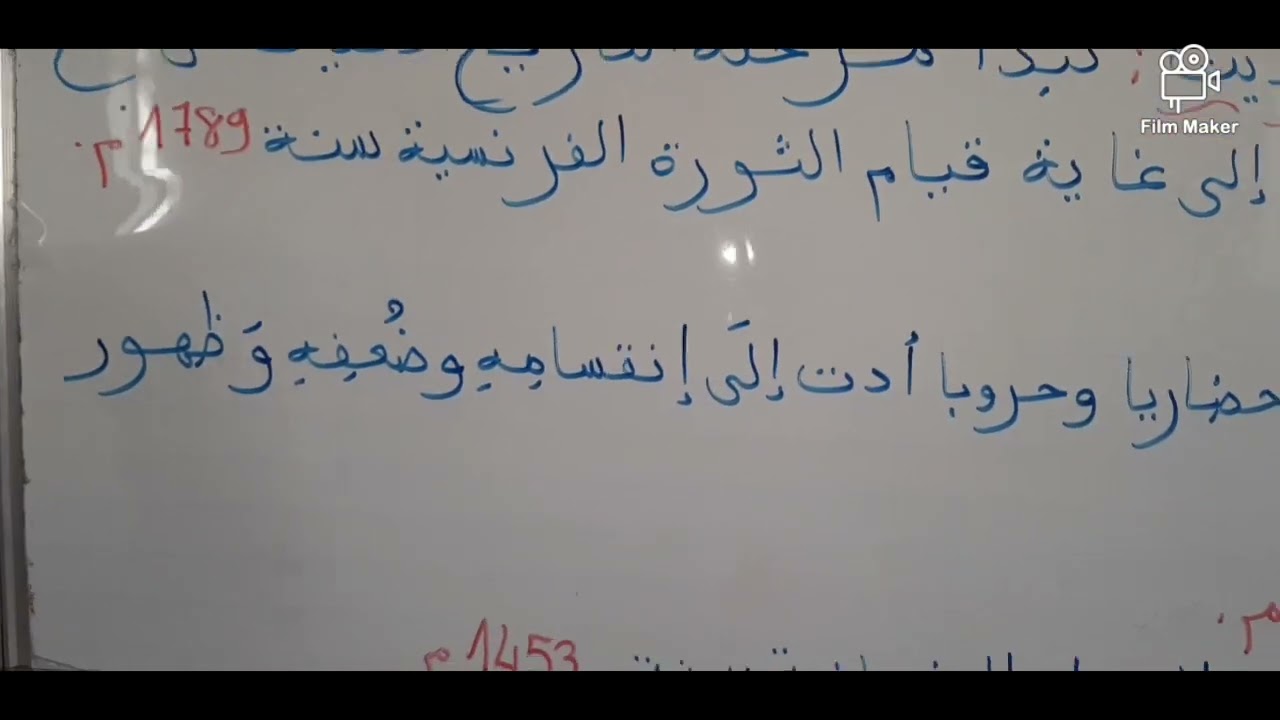 تبدأ مرحلة التاريخ
إلى غاية قيام الثورة الفرنسية سنة 1789 م.
حضاريا وحروبا أدت إلَى إنقسامِهِ وضُعفِهِ وَظهور
م.
1453 م
Film Maker